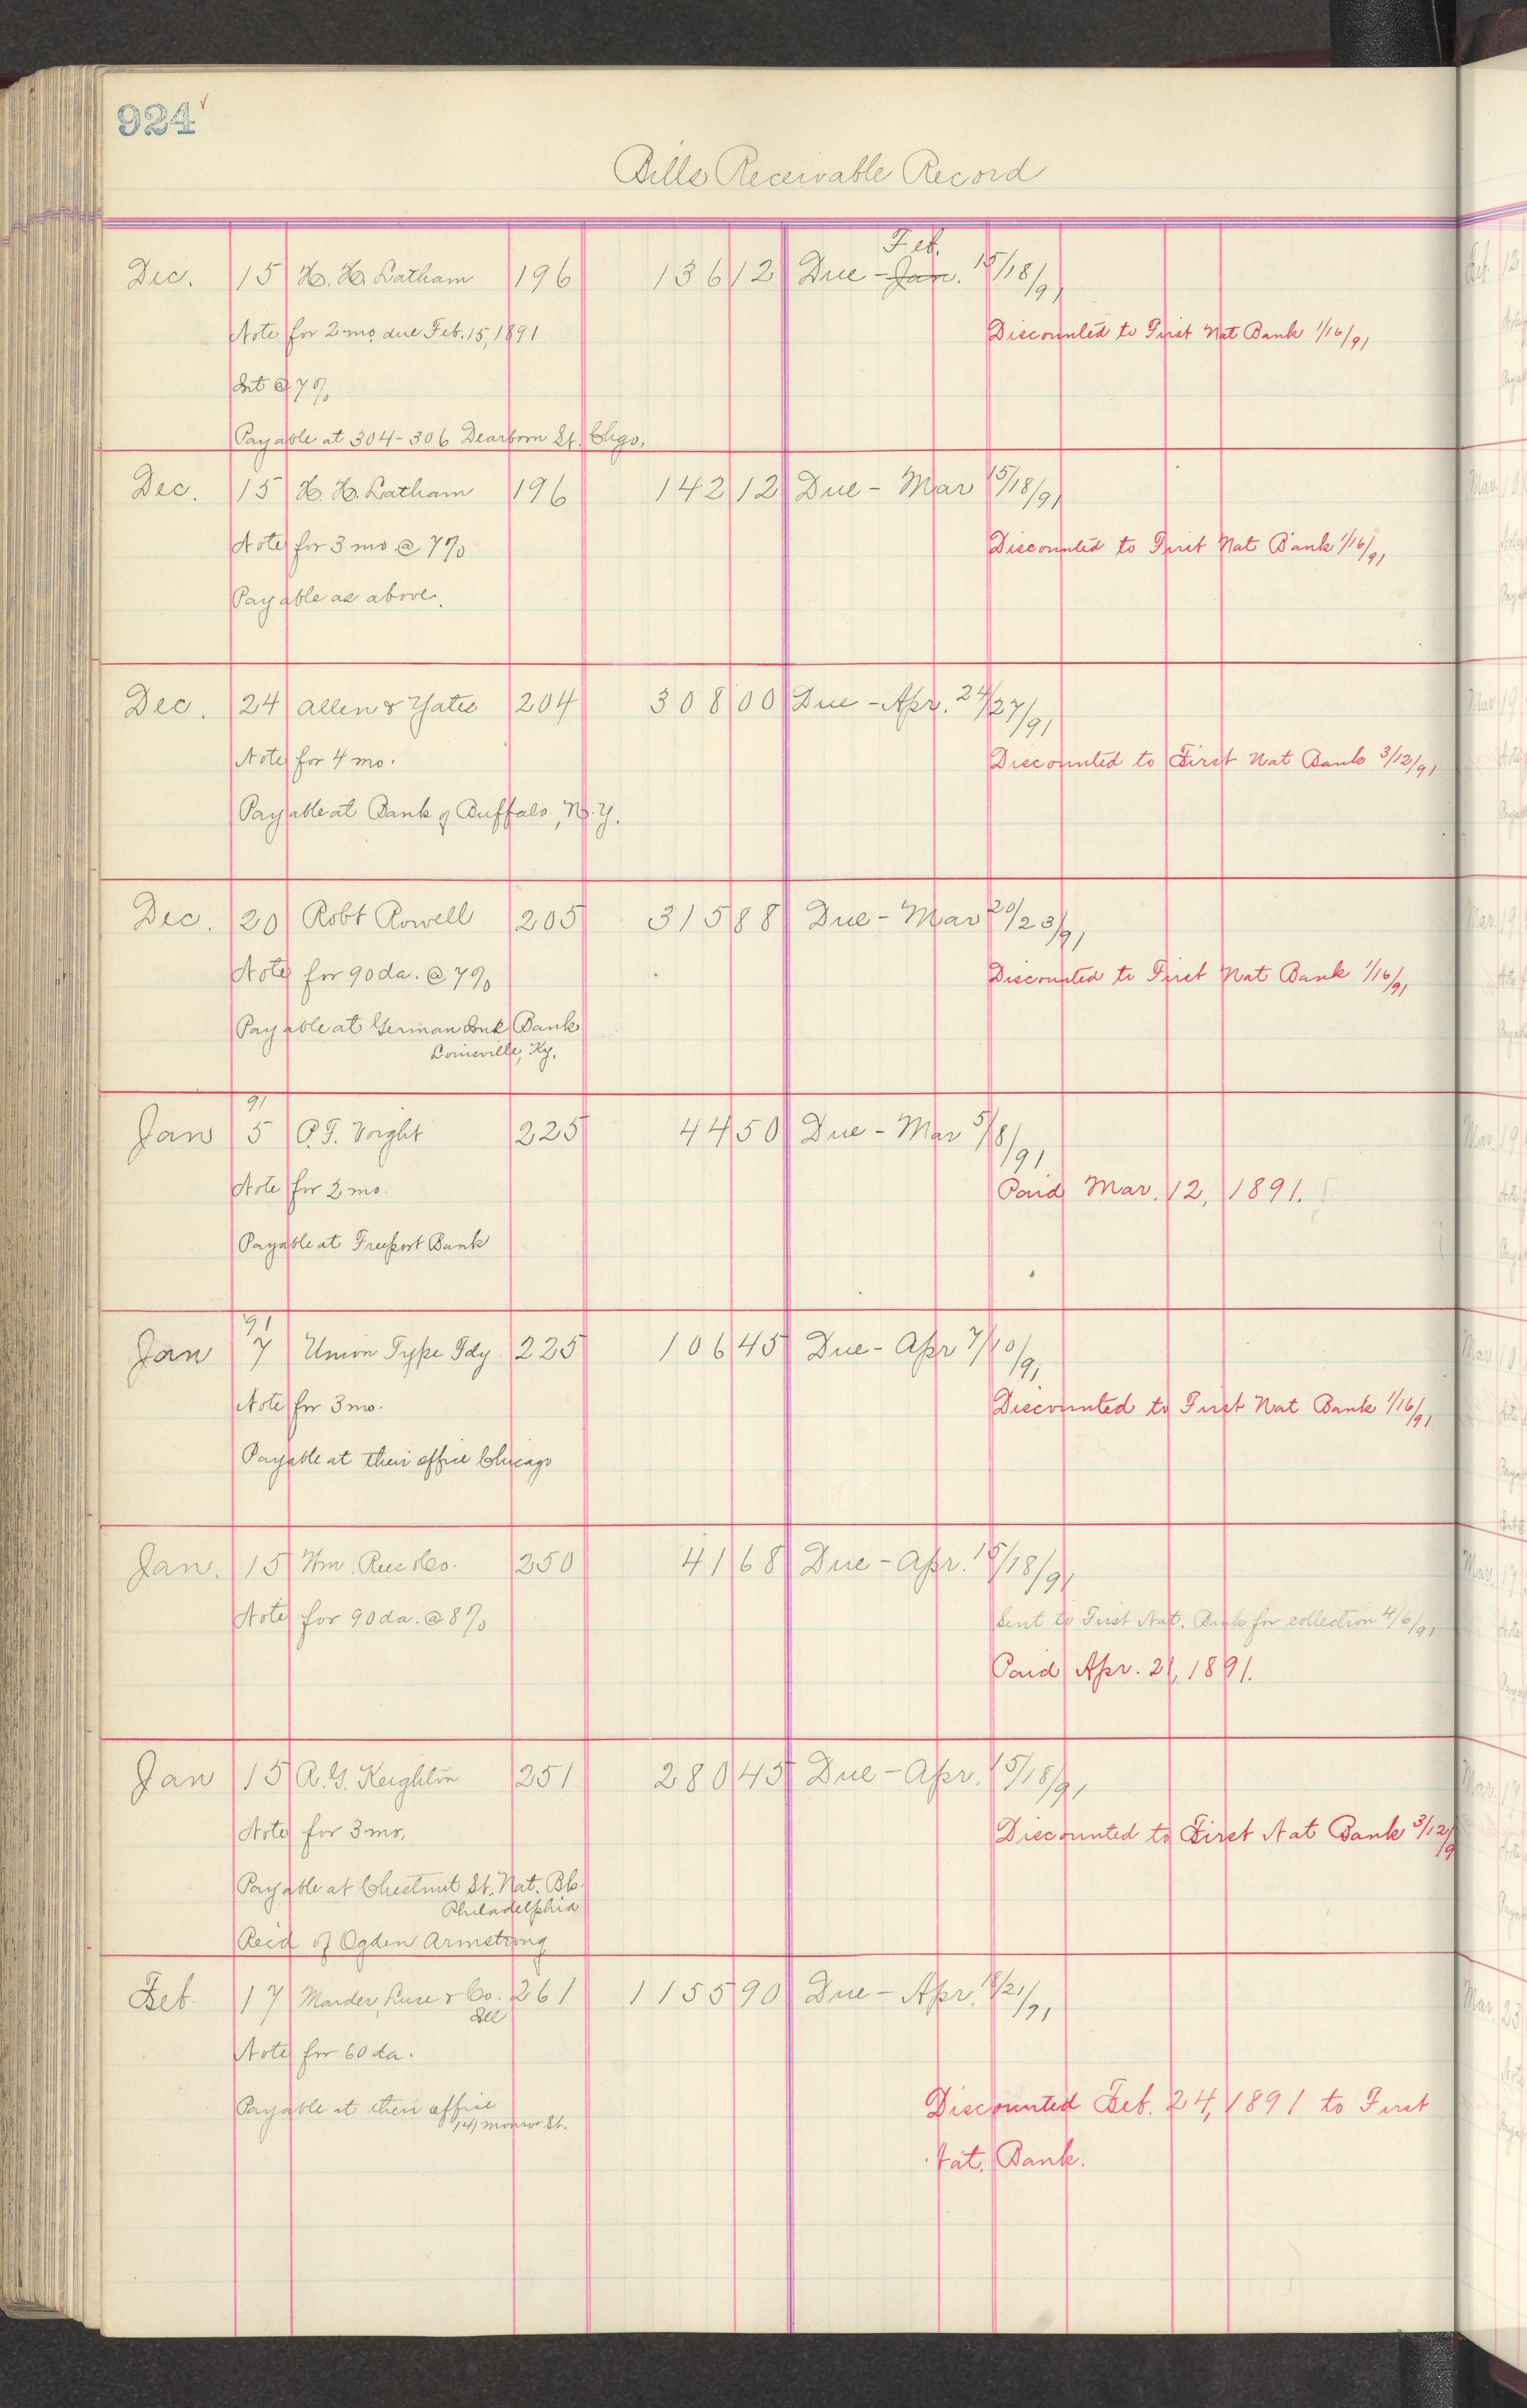 924
Bills Receivable Record
Feb.
Dec. 15 H. H. Latham 196 136 12 Due - Jan. 15/18/91
Note for 2 mo due Feb. 15, 1891 Discounted to First Nat Bank 1/16/91
Int @ 7%
Payable at 304-306 Dearborn St. Chgo.
Dec. 15 H. H. Latham 196 142 12 Due - Mar 15/18/91
Note for 3 mo. @ 7% Discounted to First Nat Bank 1/16/91
Payable as above.
Dec. 24 Allen & Yates 204 308 00 Due - Apr. 24/27/91
Note for 4 mo. Discounted to First Nat Bank 3/12/91
Payable at Bank of Buffalo, N.Y.
Dec. 20 Robt Rowell 205 315 88 Due - Mar 20/23/91
Note for 90 da. @ 7% Discounted to First Nat Bank 1/16/91
Payable at German Bank
Louisville, Ky.
91
Jan 5 P. F. Voight 225 44 50 Due - Mar 5/8/91
Note for 2 mo. Paid Mar. 12, 1891.
Payable at Freeport Bank
91
Jan 7 Union Type Fdy 225 106 45 Due - Apr 7/10/91
Note for 3 mo. Discounted to First Nat Bank 1/16/91
Payable at their office Chicago
Jan. 15 Wm. & Co. 250 41 68 Due - Apr. 15/18/91
Note for 90 da. @ 8% Sent to First Nat. Bank for collection 4/6/91
Paid Apr. 21, 1891.
Jan 15 A. G. Keighton 251 280 45 Due - Apr. 15/18/91
Note for 3 mo. Discounted to First Nat Bank 3/12/9
Payable at Chestnut St. Nat. Bk.
Philadelphia
Rec'd of Ogden Armstrong
Feb. 17 Marder, Luse & Co. 261 1155 90 Due - Apr. 18/21/91
Note for 60 da.
Payable at their office
141 Monroe St.
Discounted Feb. 24, 1891 to First
Nat. Bank.